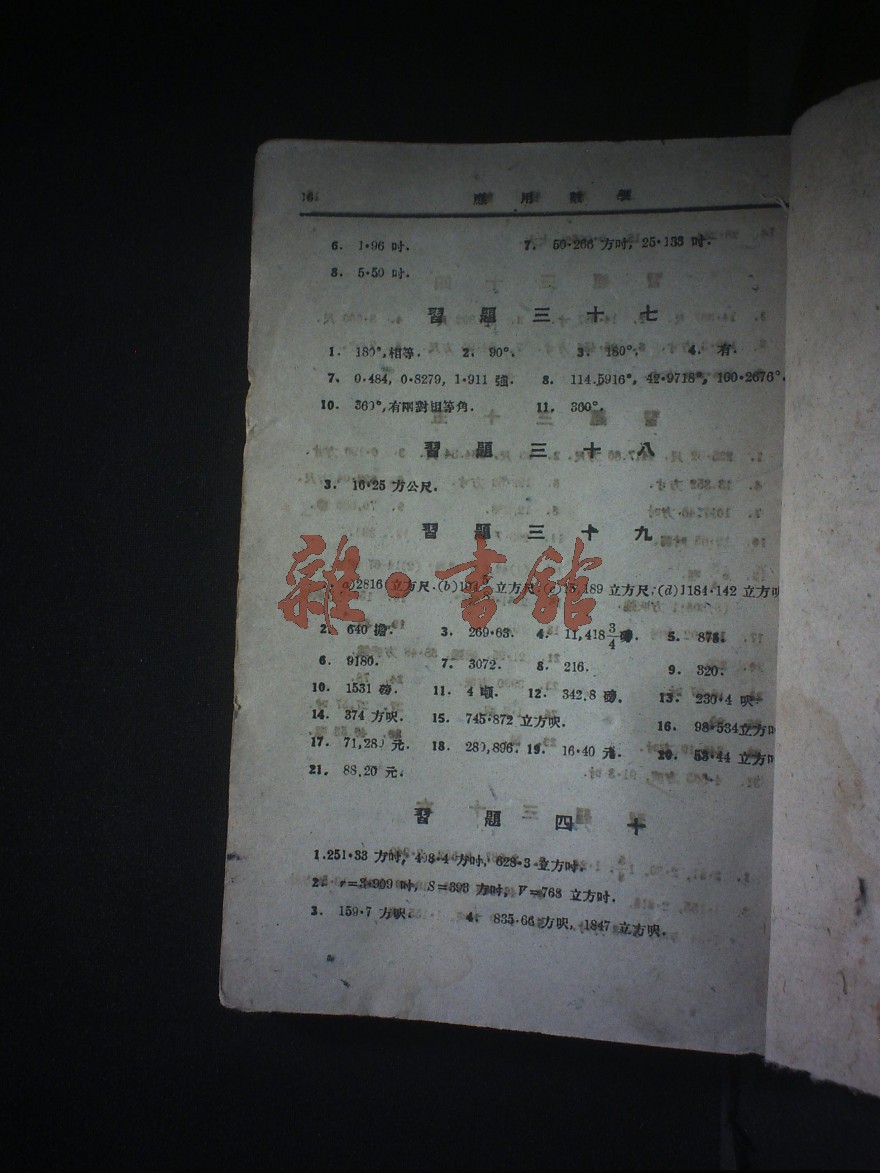 應用數學
6. 1·96 吋. 7. 50·266 方吋, 25·133 吋.
8. 5·50 吋.
習題三十七
1. 180°, 相等. 2. 90°. 3. 180°. 4. 有.
7. 0·484, 0·8279, 1·911 強. 8. 114.5916°, 42·9718°, 100·2676°.
10. 360°, 有兩對相等角. 11. 360°.
習題三十八
3. 16·25 方公尺.
習題三十九
a)2816 立方尺·(b) 立方尺; 189 立方尺; (d)1184·142 立方
2. 640 擔. 3. 269·63. 4. 11,418 3/4 磅. 5. 878.
6. 9180. 7. 3072. 8. 216. 9. 320.
10. 1531 磅. 11. 4 噸. 12. 342.8 磅. 13. 230·4 呎.
14. 374 方呎. 15. 745·872 立方呎. 16. 98·534 立方
17. 71,28 元. 18. 280,896. 19. 16·40 元. 20. 53·44 立方
21. 88.20 元.
習題四十
1. 251·33 方吋, 498·4 方吋, 628·3 立方吋.
2. r=3·909 吋, S=393 方吋, V=768 立方吋.
3. 159·7 方呎. 4. 835·66 方呎, 1847 立方呎.
雜·書館